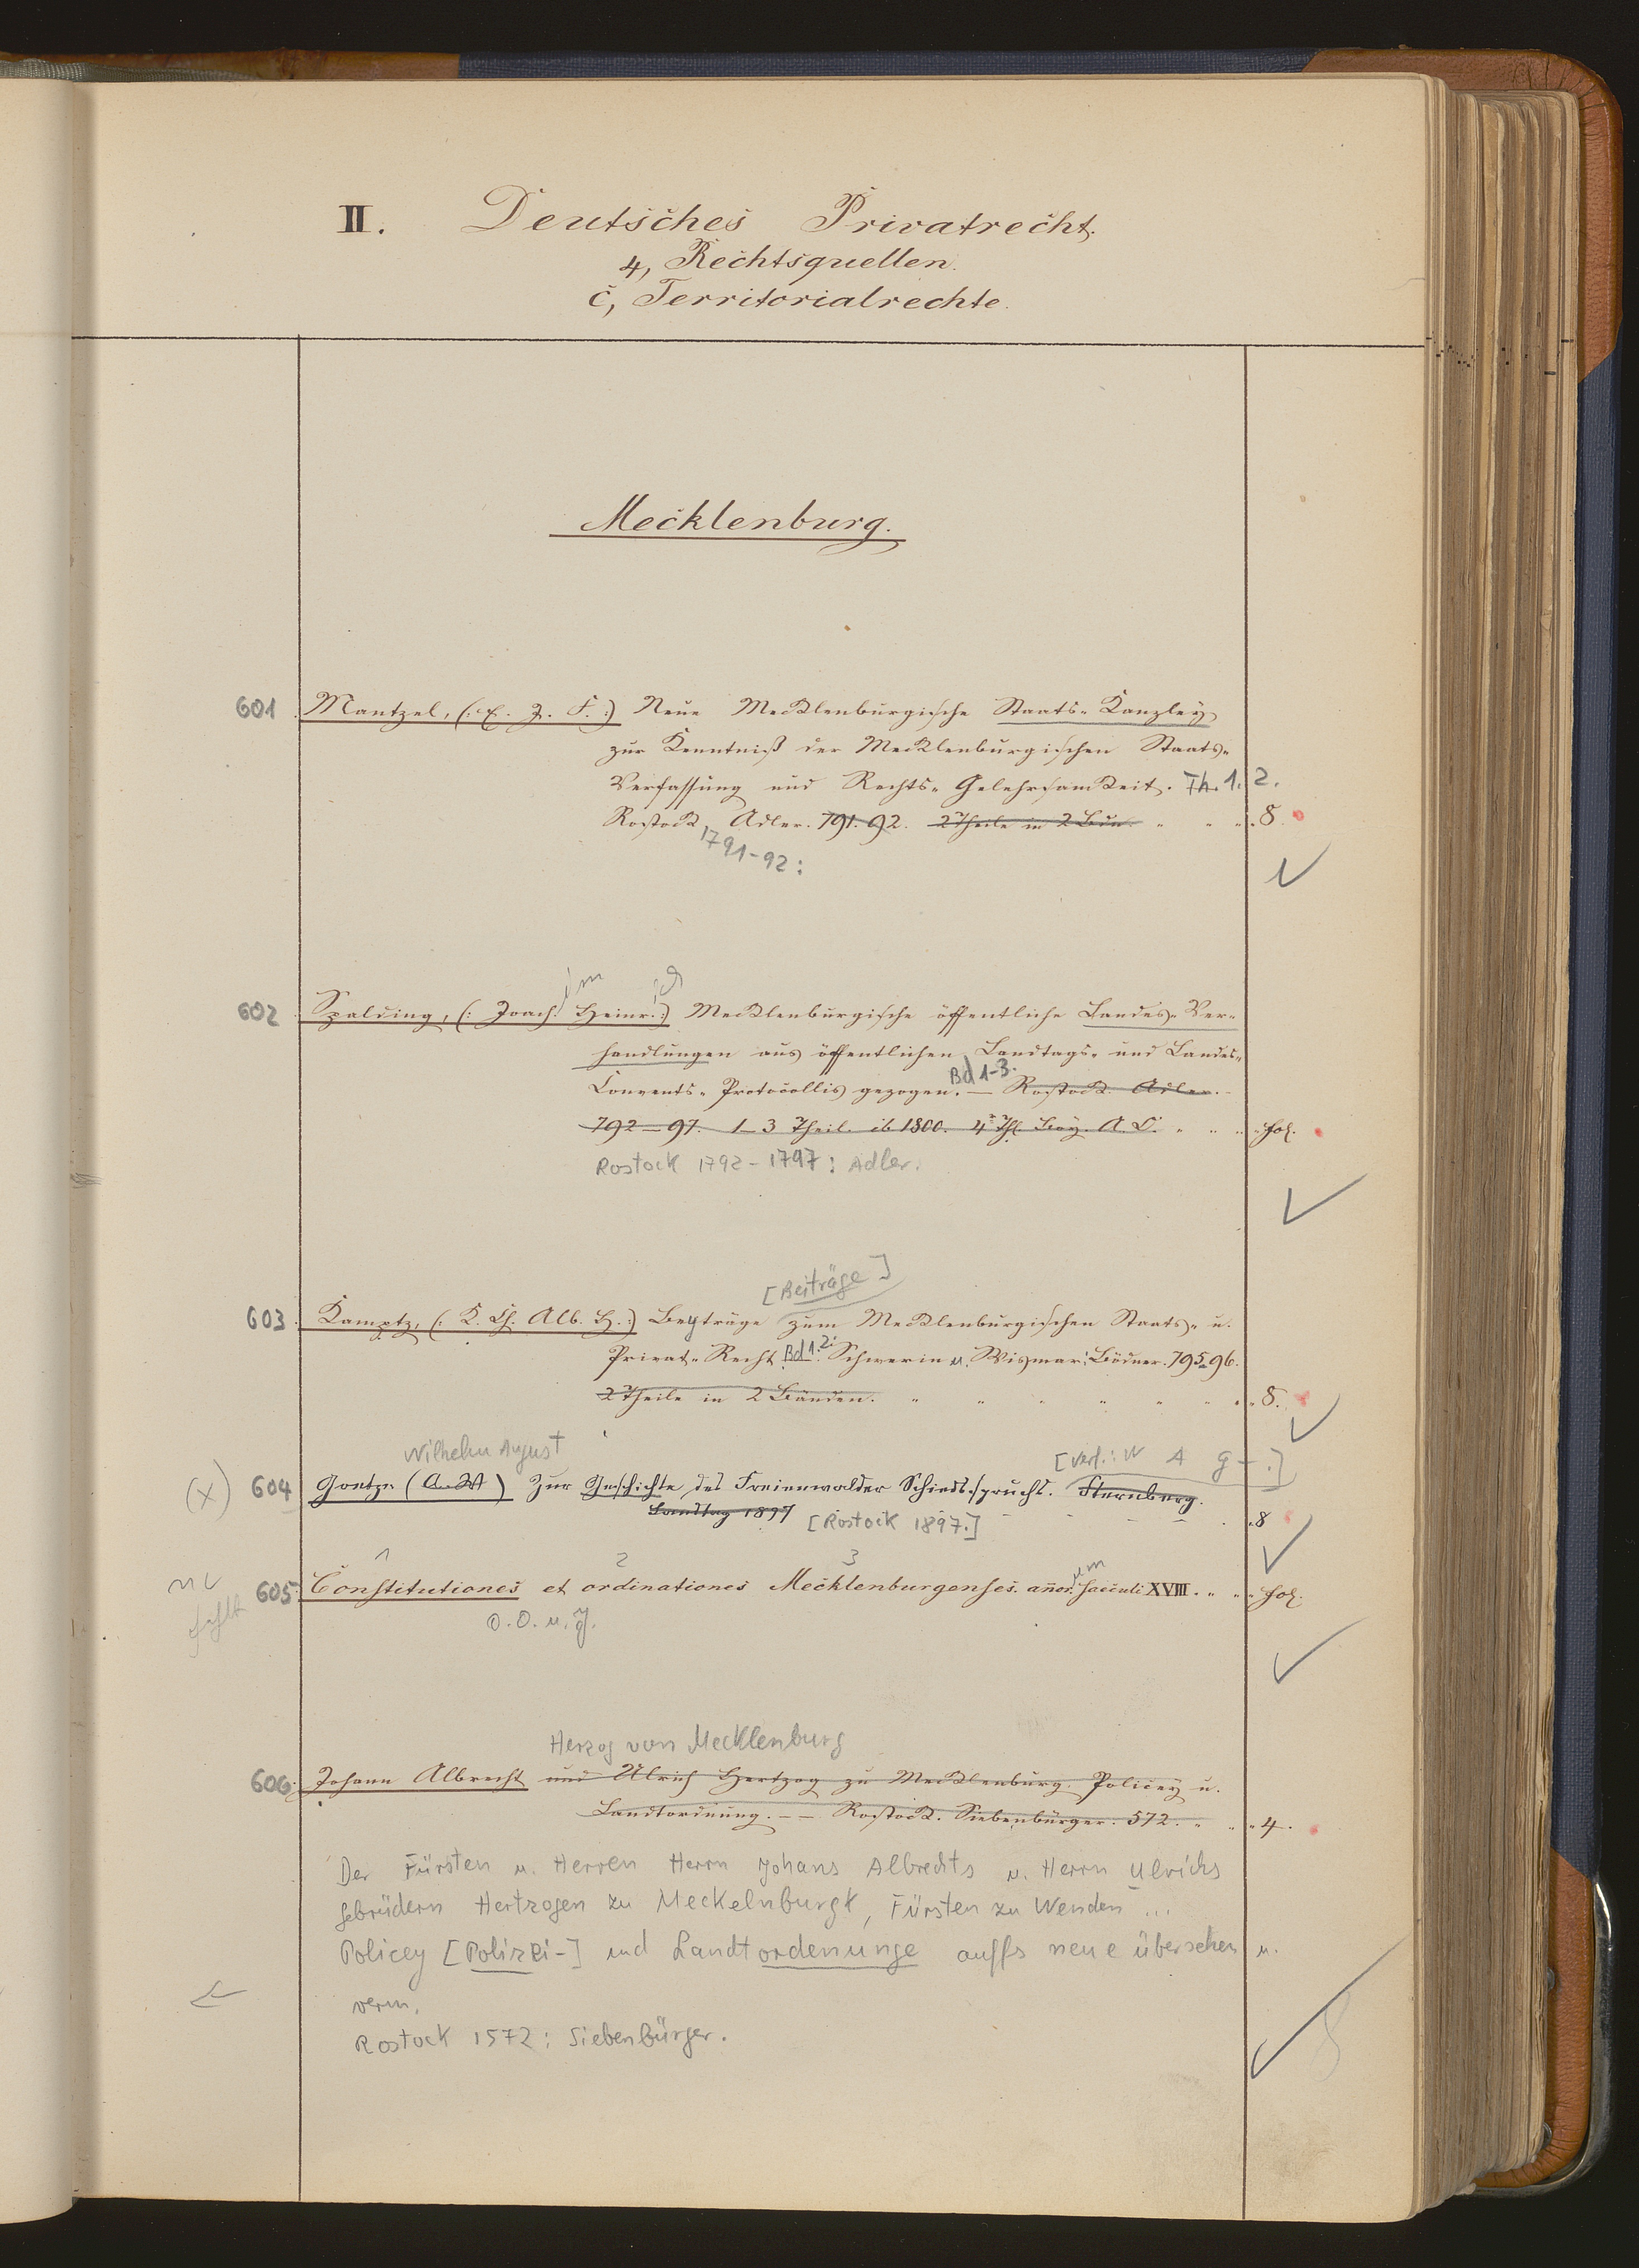 II. Deutsches Privatrecht.
4, Rechtsquellen.
c, Territorialrechte.
Mecklenburg.
601 Mantzel, (: E. J. F. :) Neue Mecklenburgische Staats-Kanzley
zur Kenntniß der Mecklenburgischen Staats-
Verfassung und Rechts-Gelehrsamkeit. Th. 1. 2.
Rostock, Adler. 791. 92. 2 Theile in 2 Bdn. 8.
1791-92:
im ich
602 Spalding, (: Joach. Heinr. :) Mecklenburgische öffentliche Landes-Ver-
handlungen aus öffentlichen Landtags- und Landes-
Bd 1-3.
Convents-Protocollis gezogen. — Rostock Adler.
792-97. 1-3 Theil. ib 1800. 4r Thl. fol.
Rostock 1792-1797: Adler.
[Beiträge]
603 Kamptz, (: K. Ch. Alb. H. :) Beyträge zum Mecklenburgischen Staats- u.
Privat-Recht Bd 1.2: Schwerin u. Wismar: Bödner. 795-96.
2 Theile in 2 Bänden. 8.
Wilhelm August [Verf.: W A G-.]
(x) 604 Goetze ( ) Zur Geschichte des Freienwalder Schiedsspruchs. Sternberg.
Landtag 1897 [Rostock 1897.] 8
1 2 3 um
605 Constitutiones et ordinationes Mecklenburgenses. añor. saeculi XVIII. fol.
fehlt O.O. u. J.
Herzog von Mecklenburg
606. Johann Albrecht und Ulrich Hertzog zu Mecklenburg. Policey u.
Landtordnung. — Rostock. Siebenbürger. 572. 4.
Der Fürsten u. Herren Herrn Johans Albrechts u. Herrn Ulrichs
gebrüdern Hertzogen zu Meckelnburgk, Fürsten zu Wenden ...
Policey [Polizei-] und Landtordenunge auffs neue übersehen u.
verm.
Rostock 1572: Siebenbürger.